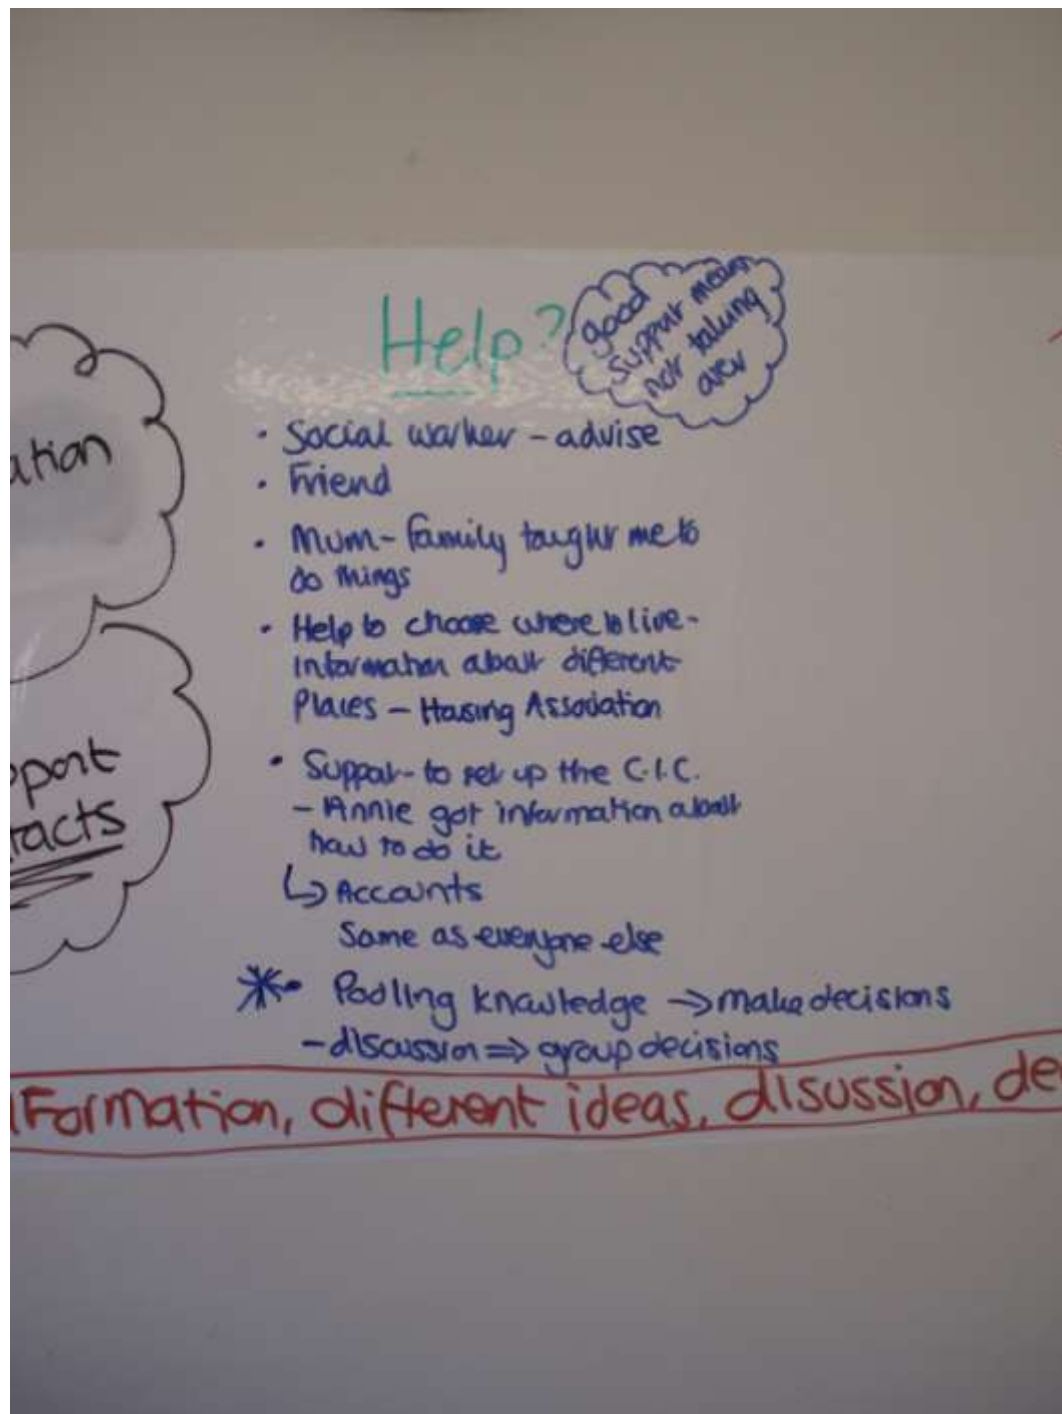 Help?
good
support means
not taking
over
ation
pport
tacts
• Social worker - advise
• Friend
• Mum - family taught me to
do things
• Help to choose where to live -
information about different
Places - Housing Association
• Support - to set up the C.I.C.
- Annie got information about
how to do it
↳ Accounts
Same as everyone else
* • Pooling knowledge → make decisions
- discussion ⇒ group decisions
nformation, different ideas, disussion, de